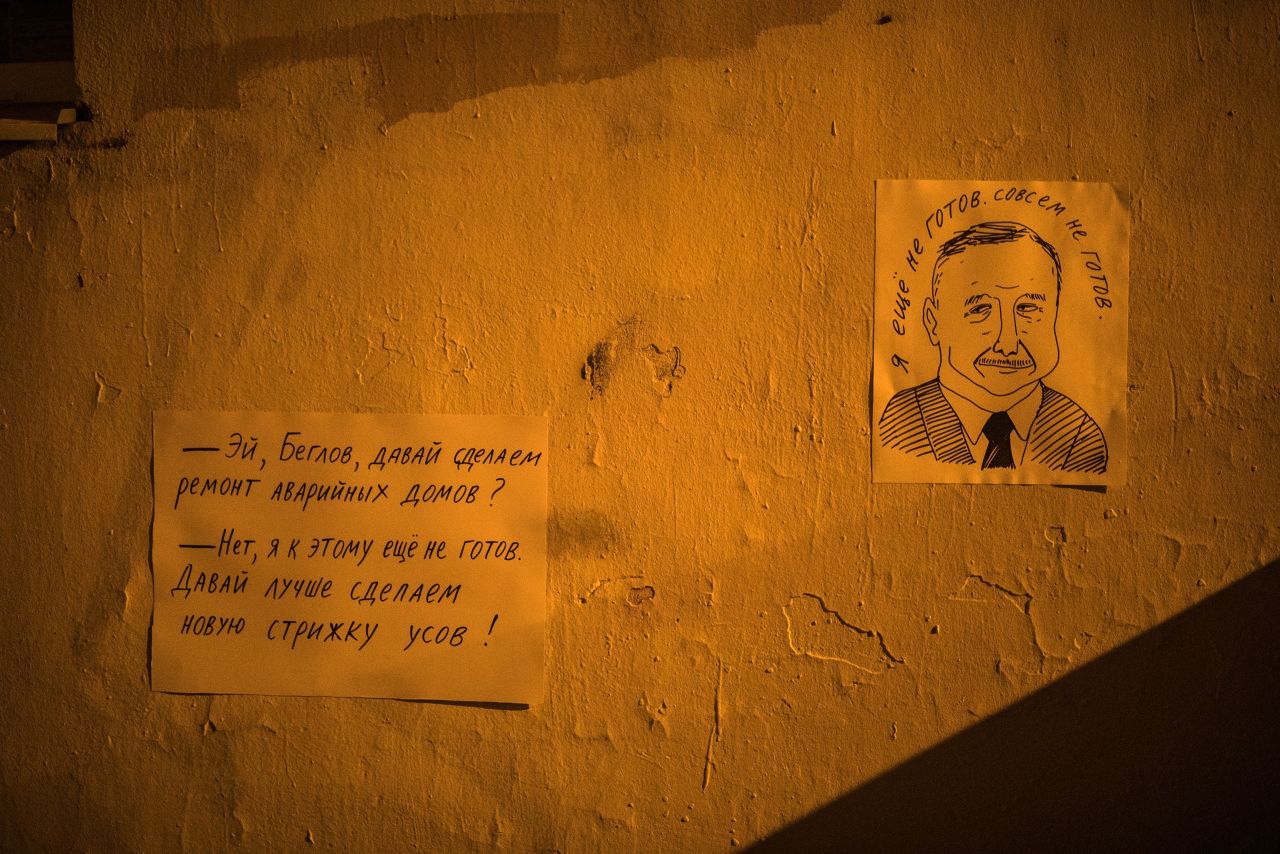 — Эй, Беглов, давай сделаем
ремонт аварийных домов?
— Нет, я к этому ещё не готов.
Давай лучше сделаем
новую стрижку усов!
я ещё не готов. совсем не готов.